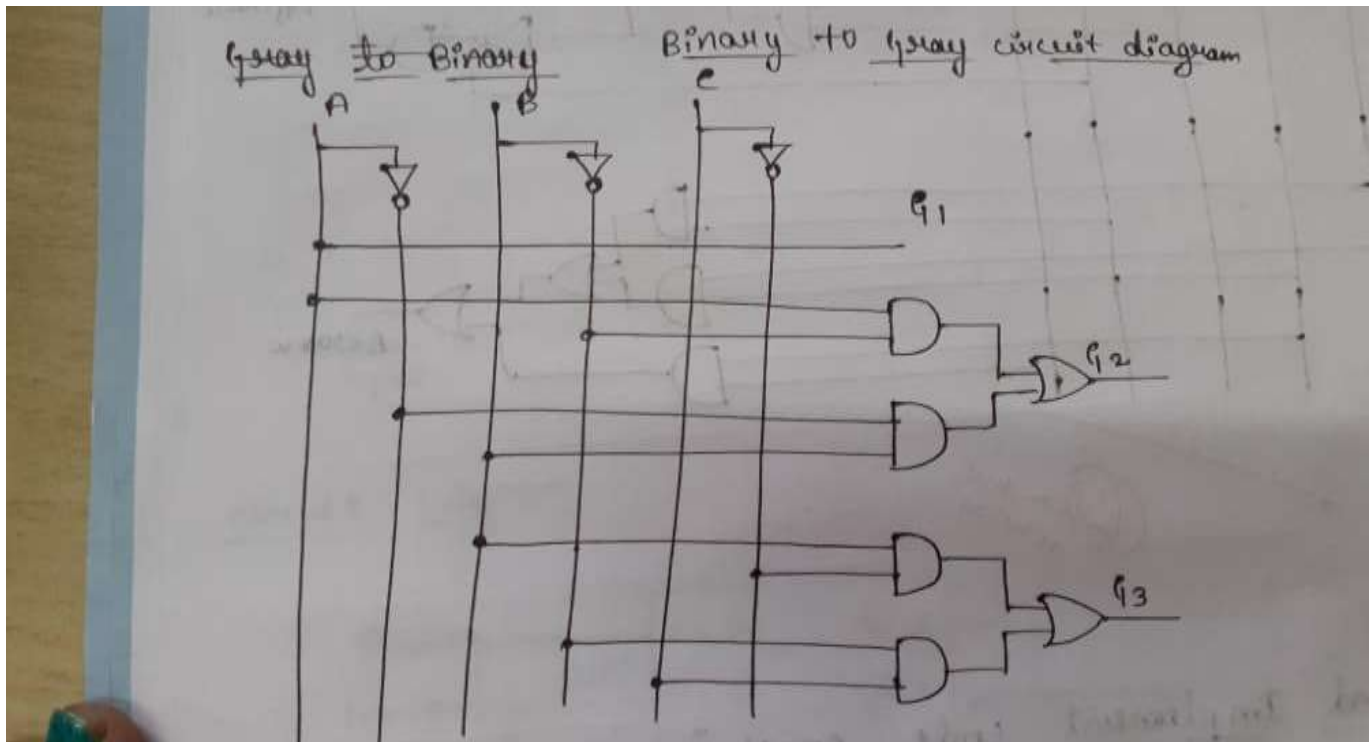 Gray to Binary Binary to Gray circuit diagram
A B C
G1
G2
G3